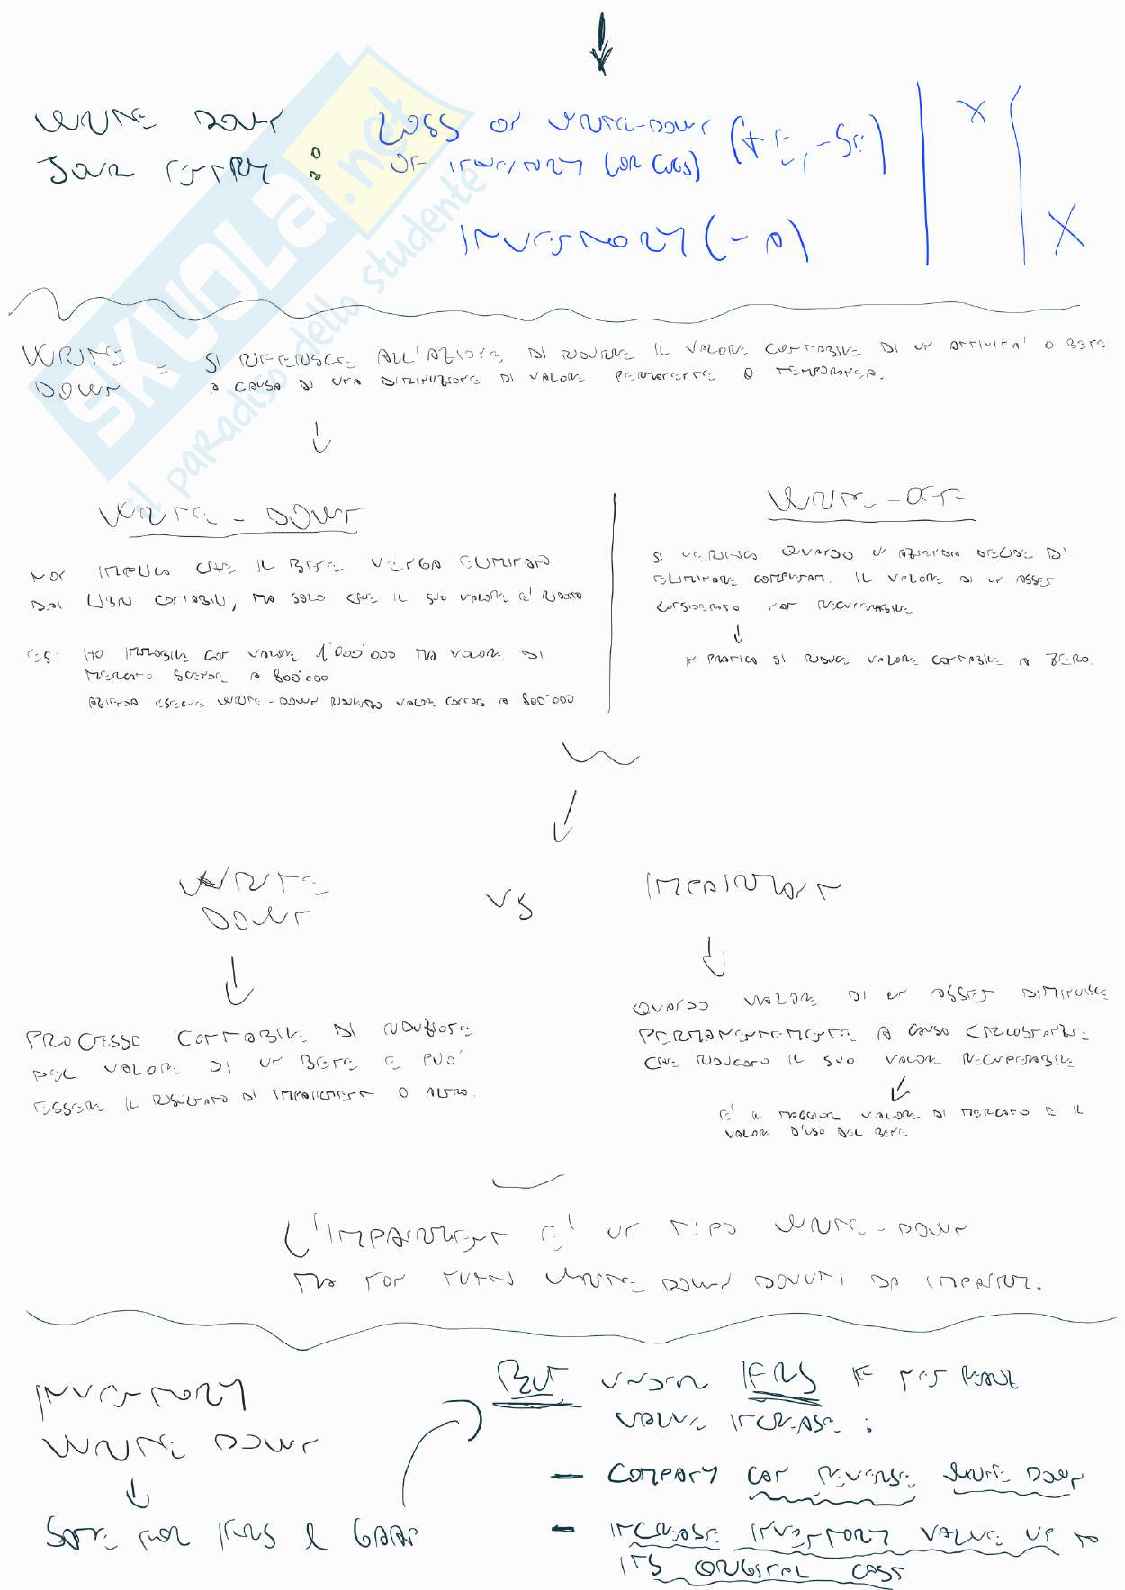 WRITE DOWN
JOUR ENTRY :
LOSS ON WRITE-DOWN
OF INVENTORY (OR COGS) (+E, -SE)
X
INVENTORY (-A)
X
WRITE DOWN = SI RIFERISCE ALL'AZIONE DI RIDURRE IL VALORE CONTABILE DI UN ATTIVITA' O BENE
A CAUSA DI UNA DIMINUZIONE DI VALORE PERMANENTE O TEMPORANEA.
WRITE-DOWN
NON IMPLICA CHE IL BENE VENGA ELIMINATO
DAI LIBRI CONTABILI, MA SOLO CHE IL SUO VALORE E' RIDOTTO
ES: HO IMMOBILE CON VALORE 1'000'000 MA VALORE DI
MERCATO SCENDE A 800'000
AZIENDA ESEGUE WRITE-DOWN RIDUCENDO VALORE CONTAB A 800'000
WRITE-OFF
SI VERIFICA QUANDO UN AZIENDA DECIDE DI
ELIMINARE COMPLETAM. IL VALORE DI UN ASSET
CONSIDERATO NON RECUPERABILE
IN PRATICA SI RIDUCE VALORE CONTABILE A ZERO.
WRITE
DOWN
VS
IMPAIRMENT
PROCESSO CONTABILE DI RIDUZIONE
DEL VALORE DI UN BENE E PUO'
ESSERE IL RISULTATO DI IMPAIRMENT O ALTRO.
QUANDO VALORE DI UN ASSET DIMINUISCE
PERMANENTEMENTE A CAUSA CIRCOSTANZE
CHE RIDUCONO IL SUO VALORE RECUPERABILE
E' IL MAGGIOR VALORE DI MERCATO E IL
VALORE D'USO DEL BENE
L'IMPAIRMENT E' UN TIPO WRITE-DOWN
MA NON TUTTI WRITE DOWN DOVUTI DA IMPAIRM.
INVENTORY
WRITE DOWN
SAME FOR IFRS & GAAP
BUT UNDER IFRS IF NET REALIZ
VALUE INCREASE :
- COMPANY CAN REVERSE WRITE DOWN
- INCREASE INVENTORY VALUE UP TO
ITS ORIGINAL COST
SKUOLA.net
il paradiso dello studente